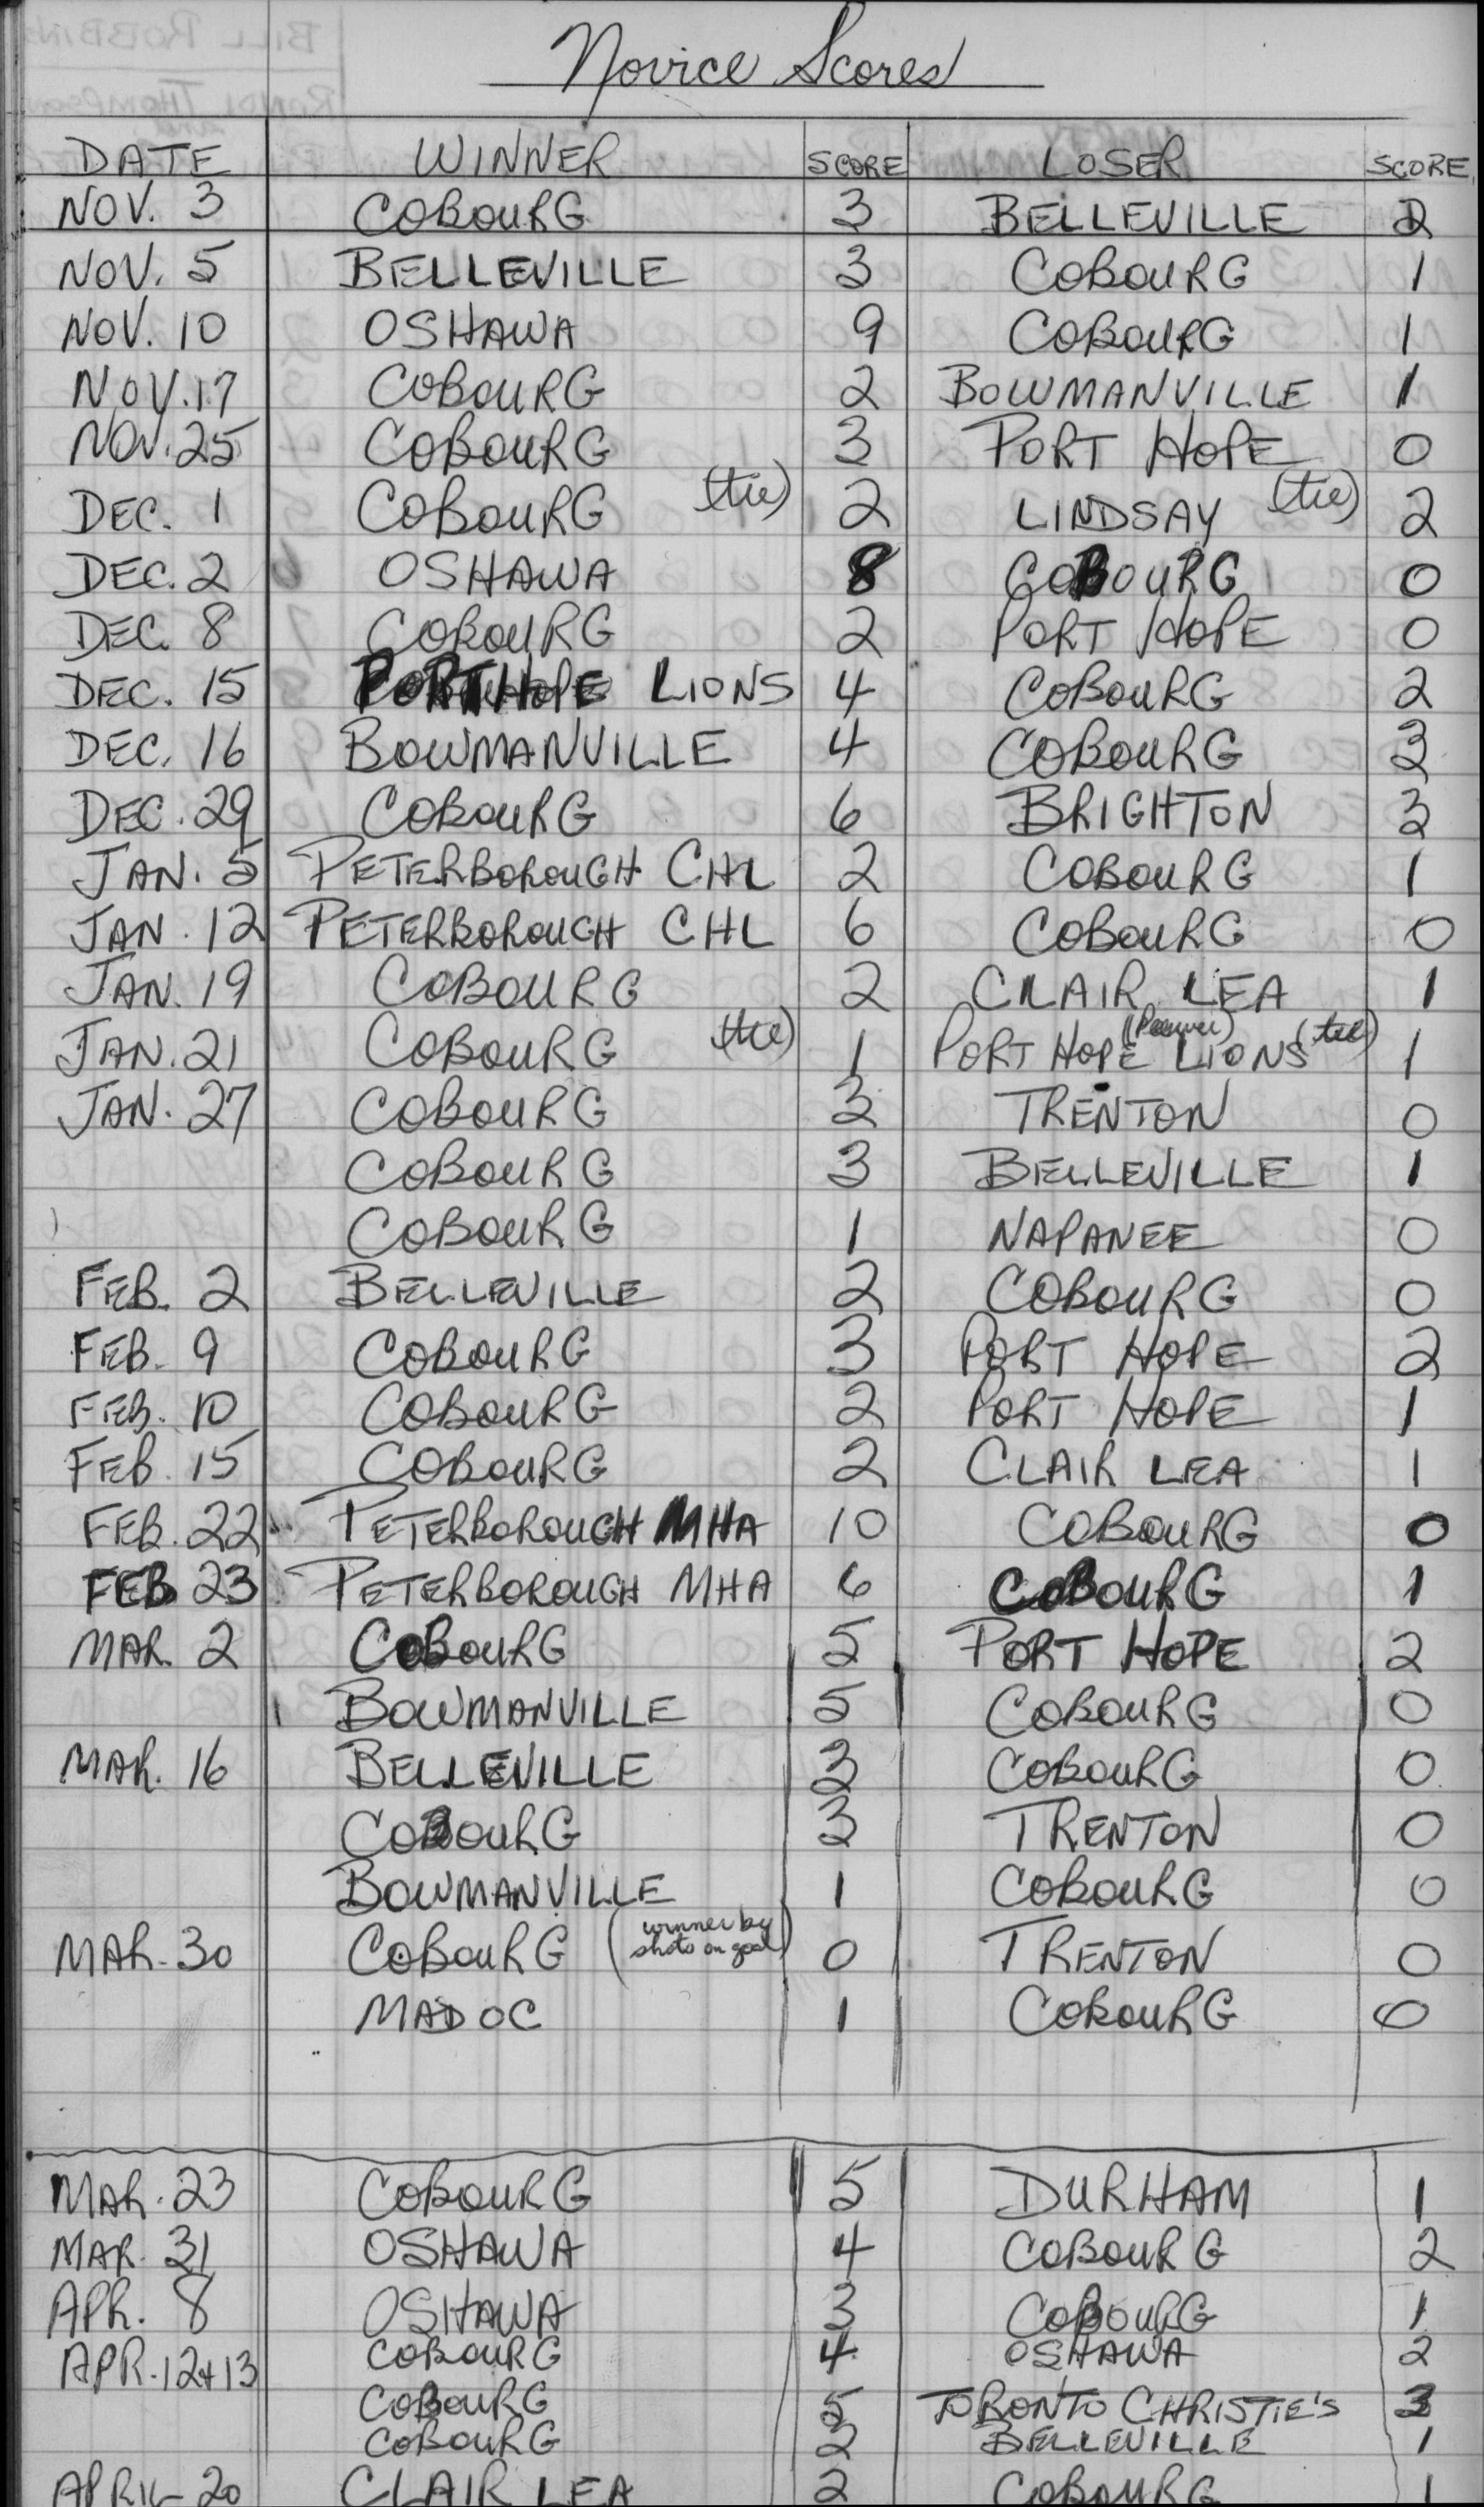 Novice Scores
DATE WINNER SCORE LOSER SCORE
NOV. 3 COBOURG 3 BELLEVILLE 2
NOV. 5 BELLEVILLE 3 COBOURG 1
NOV. 10 OSHAWA 9 COBOURG 1
NOV. 17 COBOURG 2 BOWMANVILLE 1
NOV. 25 COBOURG 3 PORT HOPE 0
DEC. 1 COBOURG (tie) 2 LINDSAY (tie) 2
DEC. 2 OSHAWA 8 COBOURG 0
DEC. 8 COBOURG 2 PORT HOPE 0
DEC. 15 PORT HOPE LIONS 4 COBOURG 2
DEC. 16 BOWMANVILLE 4 COBOURG 3
DEC. 29 COBOURG 6 BRIGHTON 3
JAN. 5 PETERBOROUGH CHL 2 COBOURG 1
JAN. 12 PETERBOROUGH CHL 6 COBOURG 0
JAN. 19 COBOURG 2 CLAIR LEA 1
JAN. 21 COBOURG (tie) 1 PORT HOPE LIONS (tie) 1
JAN. 27 COBOURG 3 TRENTON 0
COBOURG 3 BELLEVILLE 1
COBOURG 1 NAPANEE 0
FEB. 2 BELLEVILLE 2 COBOURG 0
FEB. 9 COBOURG 3 PORT HOPE 2
FEB. 10 COBOURG 2 PORT HOPE 1
FEB. 15 COBOURG 2 CLAIR LEA 1
FEB. 22 PETERBOROUGH MHA 10 COBOURG 0
FEB 23 PETERBOROUGH MHA 6 COBOURG 1
MAR. 2 COBOURG 5 PORT HOPE 2
BOWMANVILLE 5 COBOURG 0
MAR. 16 BELLEVILLE 3 COBOURG 0
COBOURG 3 TRENTON 0
BOWMANVILLE 1 COBOURG 0
MAR. 30 COBOURG (winner by shots on goal) 0 TRENTON 0
MADOC 1 COBOURG 0
MAR. 23 COBOURG 5 DURHAM 1
MAR. 31 OSHAWA 4 COBOURG 2
APR. 8 OSHAWA 3 COBOURG 1
APR. 12+13 COBOURG 4 OSHAWA 2
COBOURG 5 TORONTO CHRISTIE'S 3
COBOURG 2 BELLEVILLE 1
APRIL 20 CLAIR LEA 2 COBOURG 1